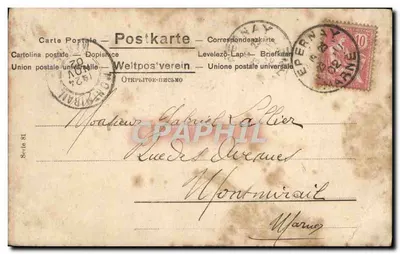 Carte Postale
Postkarte
Correspondenzkarte
Cartolina postale - Dopisnice
Levelező-Lap - Briefkaart
Union postale universelle
Weltpostverein
Unione postale universale
ОТКРЫТОЕ ПИСЬМО
EPERNAY
EPERNAY
MARNE
10
MONTMIRAIL
24
NOV
02
Serie 81
Monsieur Gabriel Lallier
Rue des
Montmirail
Marne